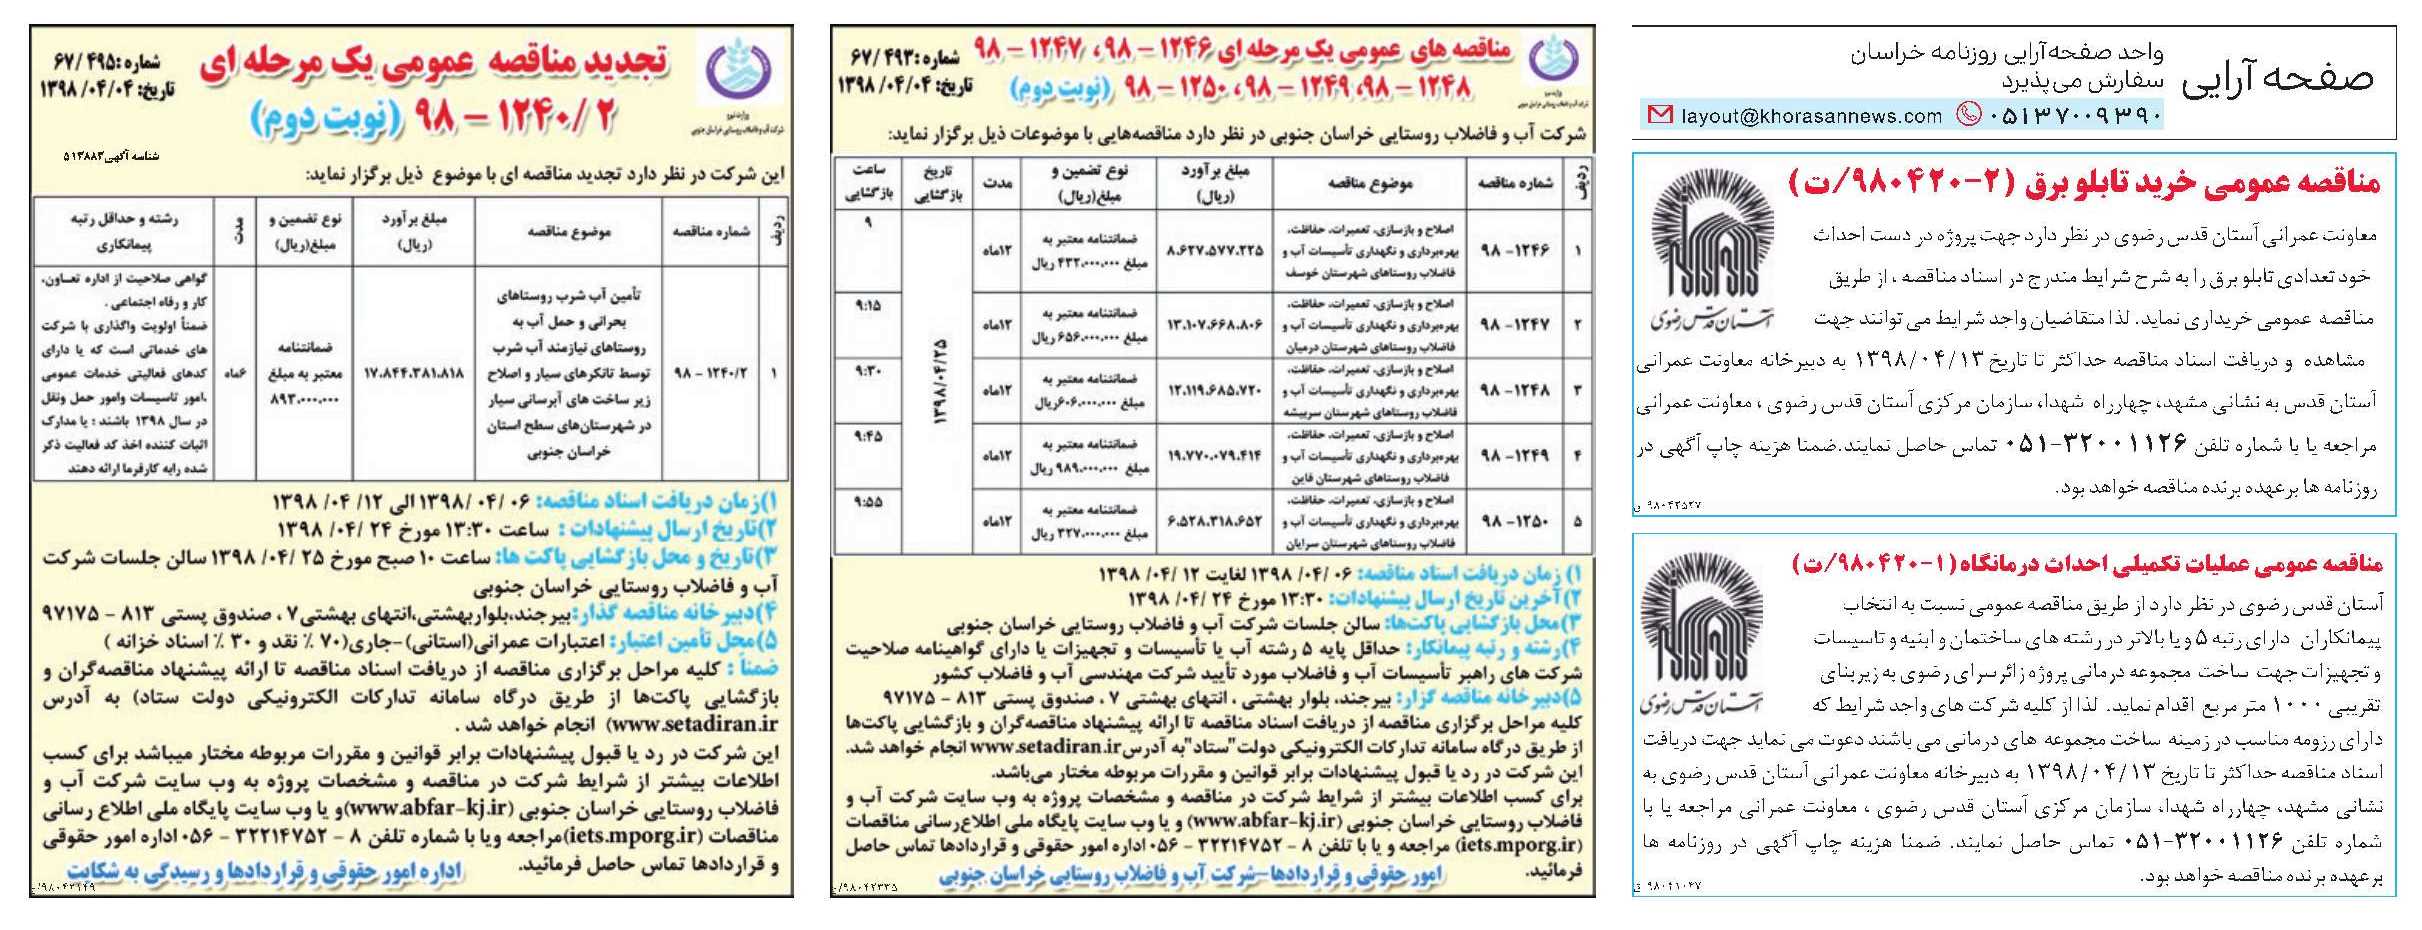 صفحه آرایی
واحد صفحه‌آرایی روزنامه خراسان
سفارش می‌پذیرد
layout@khorasannews.com ۰۵۱۳۷۰۰۹۳۹۰
مناقصه عمومی خرید تابلو برق (۲-۹۸۰۴۲۰/ت)
معاونت عمرانی آستان قدس رضوی در نظر دارد جهت پروژه در دست احداث
خود تعدادی تابلو برق را به شرح شرایط مندرج در اسناد مناقصه ، از طریق
مناقصه عمومی خریداری نماید. لذا متقاضیان واجد شرایط می توانند جهت
مشاهده و دریافت اسناد مناقصه حداکثر تا تاریخ ۱۳۹۸/۰۴/۱۳ به دبیرخانه معاونت عمرانی
آستان قدس به نشانی مشهد، چهارراه شهدا، سازمان مرکزی آستان قدس رضوی ، معاونت عمرانی
مراجعه یا با شماره تلفن ۳۲۰۰۱۱۲۶-۰۵۱ تماس حاصل نمایند.ضمنا هزینه چاپ آگهی در
روزنامه ها برعهده برنده مناقصه خواهد بود.
آستان قدس رضوی
۹۸۰۴۳۵۲۷ ق
مناقصه عمومی عملیات تکمیلی احداث درمانگاه (۱-۹۸۰۴۲۰/ت)
آستان قدس رضوی در نظر دارد از طریق مناقصه عمومی نسبت به انتخاب
پیمانکاران دارای رتبه ۵ و یا بالاتر در رشته های ساختمان و ابنیه و تاسیسات
و تجهیزات جهت ساخت مجموعه درمانی پروژه زائرسرای رضوی به زیربنای
تقریبی ۱۰۰۰ متر مربع اقدام نماید. لذا از کلیه شرکت های واجد شرایط که
دارای رزومه مناسب در زمینه ساخت مجموعه های درمانی می باشند دعوت می نماید جهت دریافت
اسناد مناقصه حداکثر تا تاریخ ۱۳۹۸/۰۴/۱۳ به دبیرخانه معاونت عمرانی آستان قدس رضوی به
نشانی مشهد، چهارراه شهدا، سازمان مرکزی آستان قدس رضوی ، معاونت عمرانی مراجعه یا با
شماره تلفن ۳۲۰۰۱۱۲۶-۰۵۱ تماس حاصل نمایند. ضمنا هزینه چاپ آگهی در روزنامه ها
برعهده برنده مناقصه خواهد بود.
آستان قدس رضوی
۹۸۰۴۱۰۴۷ ق
مناقصه های عمومی یک مرحله ای ۱۲۴۶ – ۹۸، ۱۲۴۷ – ۹۸
۱۲۴۸ – ۹۸، ۱۲۴۹ – ۹۸، ۱۲۵۰ – ۹۸ (نوبت دوم)
شماره: ۶۷/۴۹۳
تاریخ: ۱۳۹۸/۰۴/۰۴
وزارت نیرو
شرکت آب و فاضلاب روستایی خراسان جنوبی
شرکت آب و فاضلاب روستایی خراسان جنوبی در نظر دارد مناقصه‌هایی با موضوعات ذیل برگزار نماید:
ردیف شماره مناقصه موضوع مناقصه مبلغ برآورد (ریال) نوع تضمین و مبلغ(ریال) مدت تاریخ بازگشایی ساعت بازگشایی
۱ ۱۲۴۶– ۹۸ اصلاح و بازسازی، تعمیرات، حفاظت، بهره‌برداری و نگهداری تأسیسات آب و فاضلاب روستاهای شهرستان خوسف ۸،۶۲۷،۵۷۷،۲۲۵ ضمانتنامه معتبر به مبلغ ۴۳۲،۰۰۰،۰۰۰ ریال ۱۲ماه ۱۳۹۸/۰۴/۲۵ ۹
۲ ۱۲۴۷– ۹۸ اصلاح و بازسازی، تعمیرات، حفاظت، بهره‌برداری و نگهداری تأسیسات آب و فاضلاب روستاهای شهرستان درمیان ۱۳،۱۰۷،۶۶۸،۸۰۶ ضمانتنامه معتبر به مبلغ ۶۵۶،۰۰۰،۰۰۰ ریال ۱۲ماه ۹:۱۵
۳ ۱۲۴۸– ۹۸ اصلاح و بازسازی، تعمیرات، حفاظت، بهره‌برداری و نگهداری تأسیسات آب و فاضلاب روستاهای شهرستان سربیشه ۱۲،۱۱۹،۶۸۵،۷۲۰ ضمانتنامه معتبر به مبلغ ۶۰۶،۰۰۰،۰۰۰ریال ۱۲ماه ۹:۳۰
۴ ۱۲۴۹– ۹۸ اصلاح و بازسازی، تعمیرات، حفاظت، بهره‌برداری و نگهداری تأسیسات آب و فاضلاب روستاهای شهرستان قاین ۱۹،۷۷۰،۰۷۹،۴۱۴ ضمانتنامه معتبر به مبلغ ۹۸۹،۰۰۰،۰۰۰ ریال ۱۲ماه ۹:۴۵
۵ ۱۲۵۰– ۹۸ اصلاح و بازسازی، تعمیرات، حفاظت، بهره‌برداری و نگهداری تأسیسات آب و فاضلاب روستاهای شهرستان سرایان ۶،۵۲۸،۳۱۸،۶۵۲ ضمانتنامه معتبر به مبلغ ۳۲۷،۰۰۰،۰۰۰ ریال ۱۲ماه ۹:۵۵
۱) زمان دریافت اسناد مناقصه: ۰۶ /۰۴ /۱۳۹۸ لغایت ۱۲ /۰۴ /۱۳۹۸
۲)آخرین تاریخ ارسال پیشنهادات: ۱۳:۳۰ مورخ ۲۴ /۰۴ /۱۳۹۸
۳)محل بازگشایی پاکت‌ها: سالن جلسات شرکت آب و فاضلاب روستایی خراسان جنوبی
۴)رشته و رتبه پیمانکار: حداقل پایه ۵ رشته آب یا تأسیسات و تجهیزات یا دارای گواهینامه صلاحیت
شرکت های راهبر تأسیسات آب و فاضلاب مورد تأیید شرکت مهندسی آب و فاضلاب کشور
۵)دبیرخانه مناقصه گزار: بیرجند، بلوار بهشتی ، انتهای بهشتی ۷ ، صندوق پستی ۸۱۳ – ۹۷۱۷۵
کلیه مراحل برگزاری مناقصه از دریافت اسناد مناقصه تا ارائه پیشنهاد مناقصه‌گران و بازگشایی پاکت‌ها
از طریق درگاه سامانه تدارکات الکترونیکی دولت"ستاد"به آدرسwww.setadiran.ir انجام خواهد شد.
این شرکت در رد یا قبول پیشنهادات برابر قوانین و مقررات مربوطه مختار می‌باشد.
برای کسب اطلاعات بیشتر از شرایط شرکت در مناقصه و مشخصات پروژه به وب سایت شرکت آب و
فاضلاب روستایی خراسان جنوبی (www.abfar-kj.ir) و یا وب سایت پایگاه ملی اطلاع‌رسانی مناقصات
(iets.mporg.ir) مراجعه و یا با تلفن ۸ – ۳۲۲۱۴۷۵۲ – ۰۵۶ اداره امور حقوقی و قراردادها تماس حاصل
فرمائید.
امور حقوقی و قراردادها–شرکت آب و فاضلاب روستایی خراسان جنوبی
تجدید مناقصه عمومی یک مرحله ای
۱۲۴۰/۲ – ۹۸ (نوبت دوم)
شماره: ۶۷/۴۹۵
تاریخ: ۱۳۹۸/۰۴/۰۴
وزارت نیرو
شرکت آب و فاضلاب روستایی خراسان جنوبی
شناسه آگهی۵۱۳۸۸۳
این شرکت در نظر دارد تجدید مناقصه ای با موضوع ذیل برگزار نماید:
ردیف شماره مناقصه موضوع مناقصه مبلغ برآورد (ریال) نوع تضمین و مبلغ(ریال) مدت رشته و حداقل رتبه پیمانکاری
۱ ۱۲۴۰/۲ – ۹۸ تأمین آب شرب روستاهای بحرانی و حمل آب به روستاهای نیازمند آب شرب توسط تانکرهای سیار و اصلاح زیر ساخت های آبرسانی سیار در شهرستان‌های سطح استان خراسان جنوبی ۱۷،۸۴۴،۳۸۱،۸۱۸ ضمانتنامه معتبر به مبلغ ۸۹۳،۰۰۰،۰۰۰ ۶ماه
گواهی صلاحیت از اداره تعاون،
کار و رفاه اجتماعی .
ضمناً اولویت واگذاری با شرکت
های خدماتی است که یا دارای
کدهای فعالیتی خدمات عمومی
،امور تاسیسات وامور حمل ونقل
در سال ۱۳۹۸ باشند ؛ یا مدارک
اثبات کننده اخذ کد فعالیت ذکر
شده رابه کارفرما ارائه دهند
۱)زمان دریافت اسناد مناقصه: ۰۶ /۰۴ /۱۳۹۸ الی ۱۲ /۰۴ /۱۳۹۸
۲)تاریخ ارسال پیشنهادات : ساعت ۱۳:۳۰ مورخ ۲۴ /۰۴ /۱۳۹۸
۳)تاریخ و محل بازگشایی پاکت ها: ساعت ۱۰ صبح مورخ ۲۵ /۰۴ /۱۳۹۸ سالن جلسات شرکت
آب و فاضلاب روستایی خراسان جنوبی
۴)دبیرخانه مناقصه گذار:بیرجند،بلواربهشتی،انتهای بهشتی۷ ، صندوق پستی ۸۱۳ – ۹۷۱۷۵
۵)محل تأمین اعتبار: اعتبارات عمرانی(استانی)–جاری(۷۰ ٪ نقد و ۳۰ ٪ اسناد خزانه )
ضمناً : کلیه مراحل برگزاری مناقصه از دریافت اسناد مناقصه تا ارائه پیشنهاد مناقصه‌گران و
بازگشایی پاکت‌ها از طریق درگاه سامانه تدارکات الکترونیکی دولت ستاد) به آدرس
www.setadiran.ir) انجام خواهد شد .
این شرکت در رد یا قبول پیشنهادات برابر قوانین و مقررات مربوطه مختار میباشد برای کسب
اطلاعات بیشتر از شرایط شرکت در مناقصه و مشخصات پروژه به وب سایت شرکت آب و
فاضلاب روستایی خراسان جنوبی (www.abfar-kj.ir)و یا وب سایت پایگاه ملی اطلاع رسانی
مناقصات (iets.mporg.ir)مراجعه ویا با شماره تلفن ۸ – ۳۲۲۱۴۷۵۲ – ۰۵۶ اداره امور حقوقی
و قراردادها تماس حاصل فرمائید.
اداره امور حقوقی و قراردادها و رسیدگی به شکایت